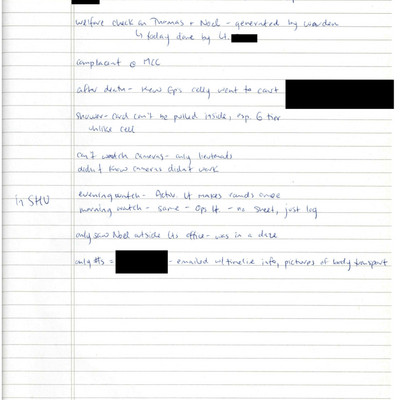 welfare check on Thomas + Noel - generated by warden
↳ today done by Lt.
complacent @ MCC
after death - knew Eps celly went to court
shower - cord can't be pulled inside, esp. G tier
unlike cell
can't watch cameras - only lieutenants
didn't know cameras didn't work
in SHU
evening watch - Activ. Lt makes rounds once
morning watch - same - Ops Lt - no sheet, just log
only saw Noel outside Lts office - was in a daze
only #s = - emailed w/ timeline info, pictures of body transport